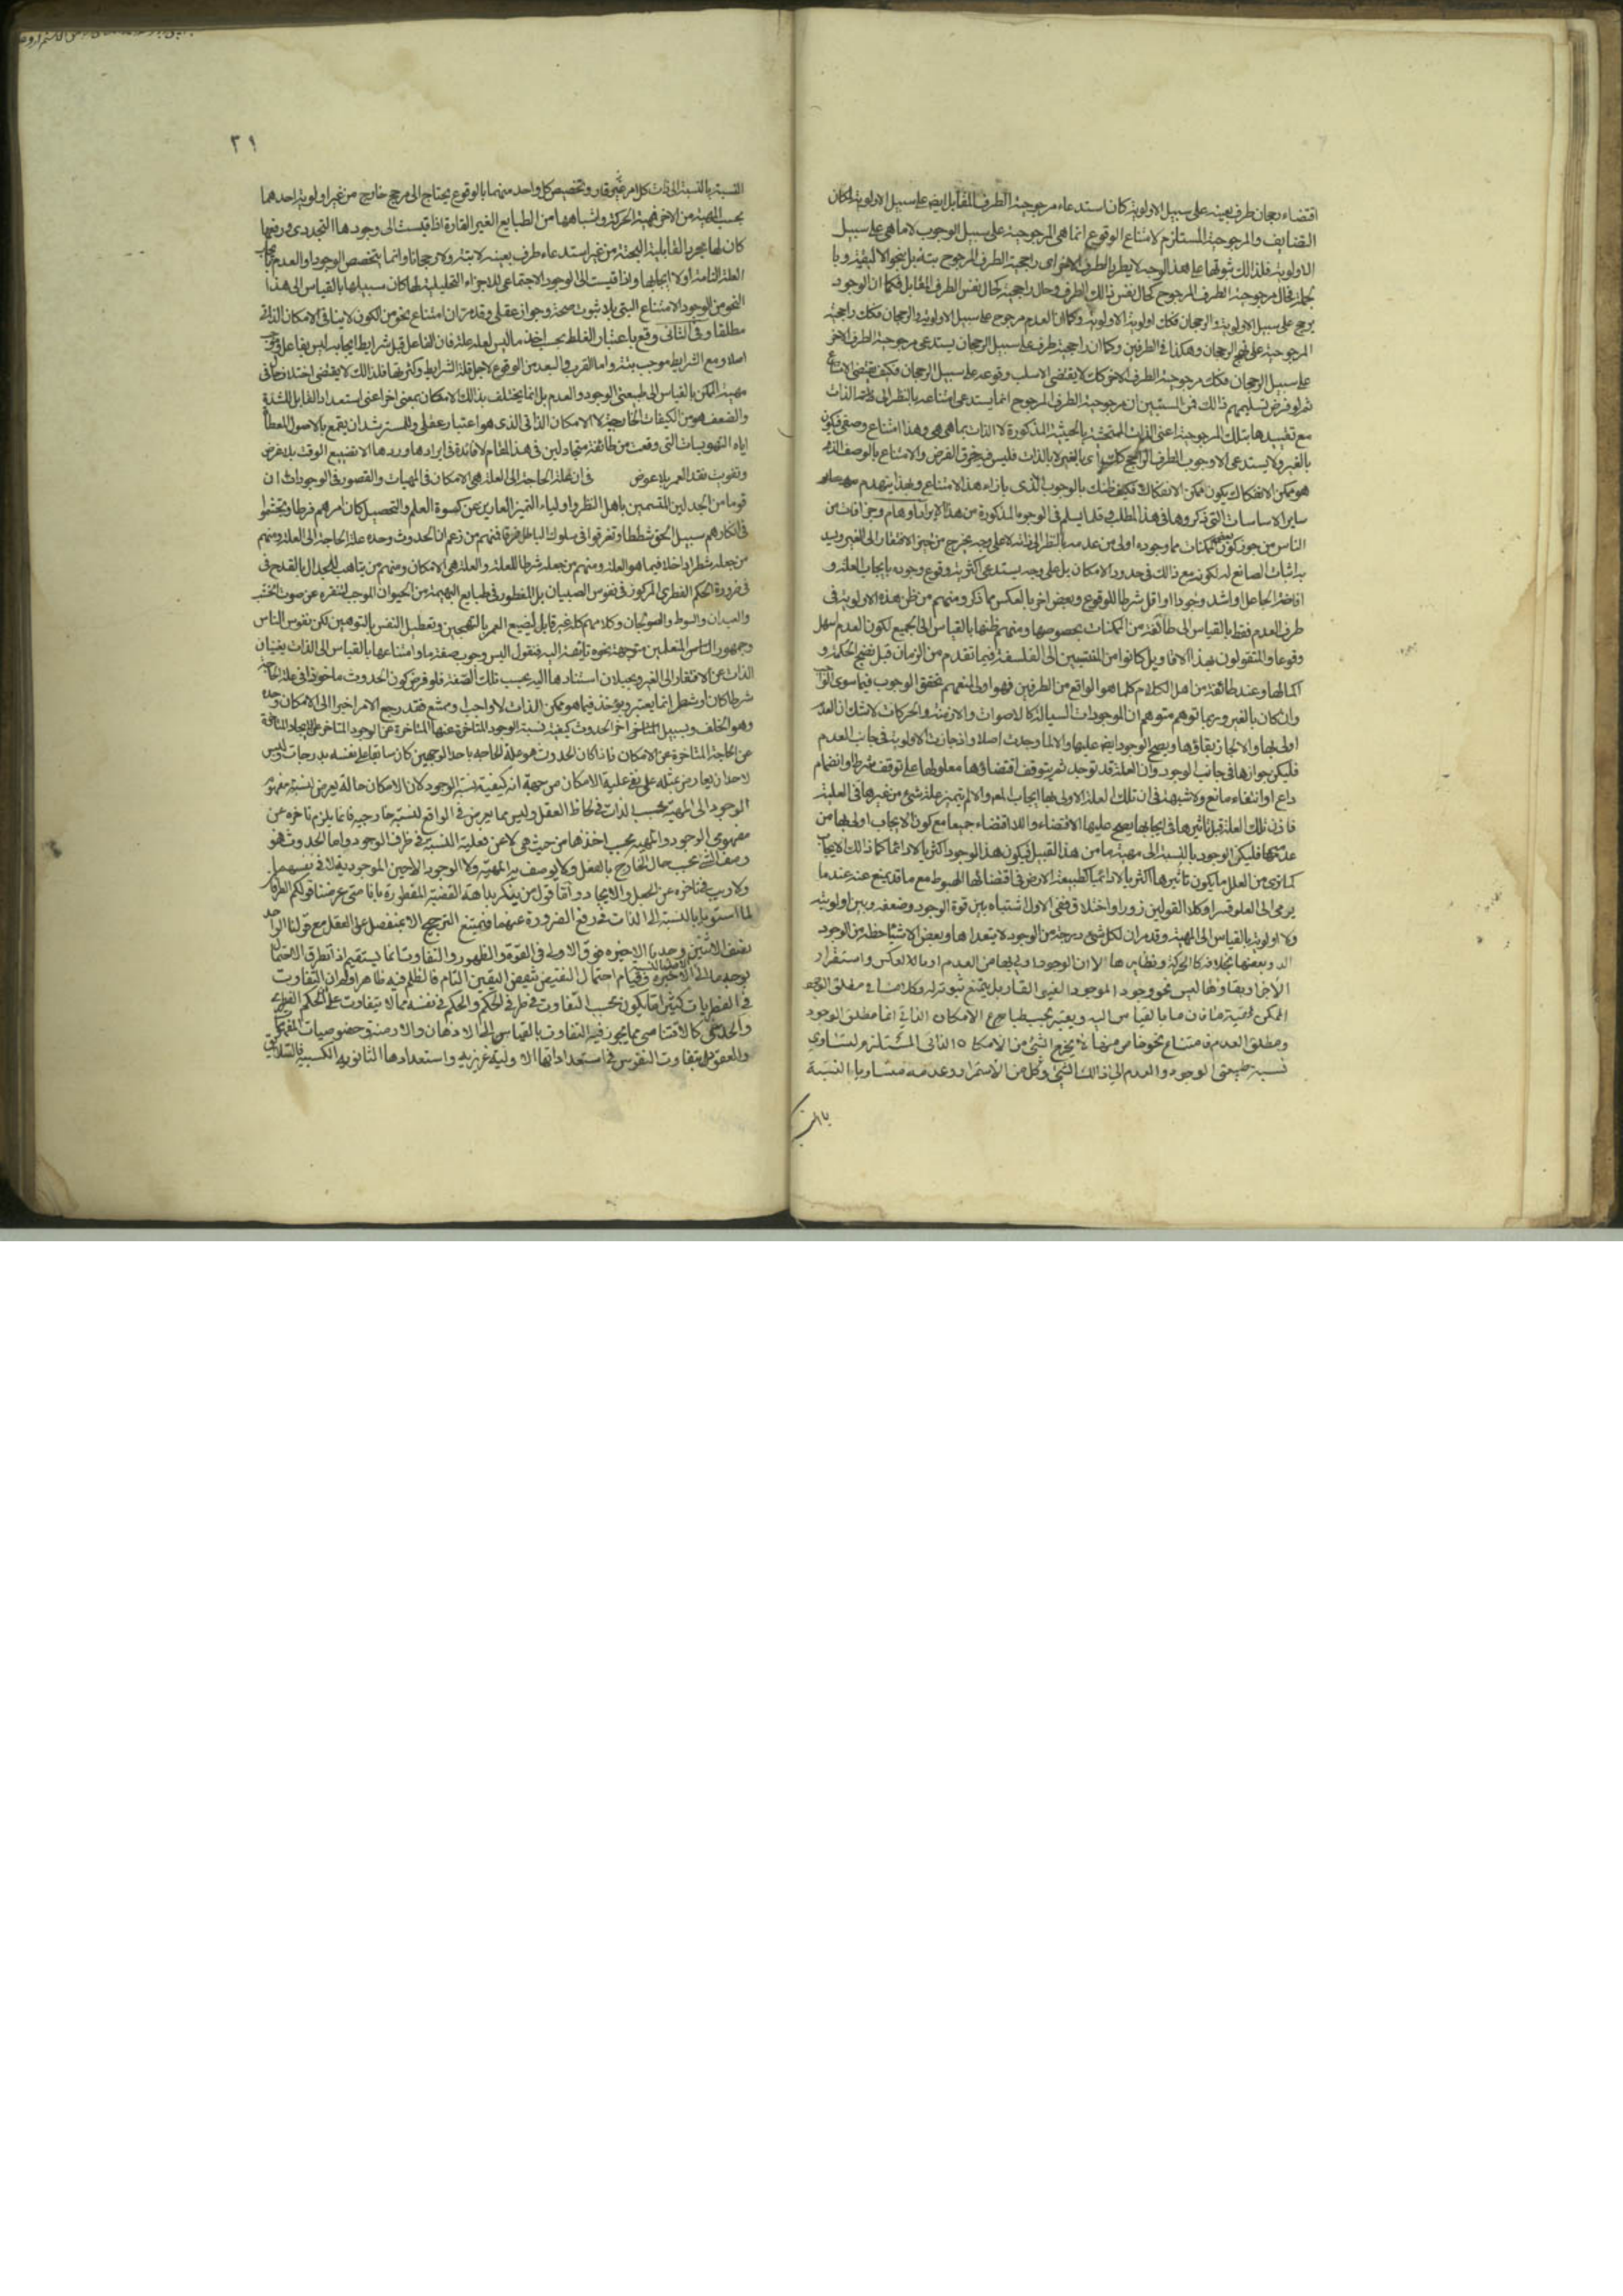 اقتضاء رجحان طرف بعينه على سبيل الاولوية كان استدعاء مرجوحية الطرف المقابل ايض على سبيل الاولوية لمكان
التضايف والمرجوحية المستلزم لامتناع الوقوع انما هى المرجوحية على سبيل الوجوب لا ما هى على سبيل
الاولوية فلذالك ثبوتها على هذا الوجه لا يطرد الطرف الاخر اى راجحية الطرف المرجوح بتة بل بنحو الاليقية وبا
لجملة فحال مرجوحية الطرف المرجوح كحال نفس ذالك الطرف وحال راجحيته كحال نفس الطرف المقابل فكما ان الوجود
يرجح على سبيل الاولوية والرجحان فكك اولوية الاولوية وكما ان العدم مرجوح على سبيل الاولوية والرجحان فكك راجحية
المرجوحية على نهج الرجحان وهكذا فى الطرفين وكما ان راجحية طرف على سبيل الرجحان يستدعى مرجوحية الطرف الاخر
على سبيل الرجحان فكك مرجوحية الطرف الاخر كك لا يقتضى الا سلب وقوعه على سبيل الرجحان فكيف يقتضى الامتناع
ثم لو فرض تسليمهم ذالك فمن المستبين ان مرجوحية الطرف المرجوح انما يستدعى امتناعه بالنظر الى الذات
مع تقييدها بتلك المرجوحية اعنى الذات المتحيثة بالحيثية المذكورة لا الذات بما هى هى وهذا امتناع وصفى فيكون
بالغير ولا يستدعى الا وجوب الطرف الراجح كك اى بالغير لا بالذات فليس فيه خرق الفرض والامتناع بالوصف الذى
هو ممكن الانفكاك يكون ممكن الانفكاك فكيف ظنك بالوجوب الذى بازاء هذا الامتناع وبهذا ينهدم
ساير الاساسات التى ذكروها فى هذا المطلب وقلما يسلم فى الوجوه المذكورة من هذا الايراد اوهام وجزافات من
الناس من جوز كون بعض الممكنات مما وجوده اولى من عدمه بالنظر الى ذاته لا على وجه يخرج من حيز الافتقار الى الغير ويسد
به اثبات الصانع له لكونه مع ذالك فى حدود الامكان بل على وجه يستدعى اكثرية وقوع وجوده بايجاب العلة و
افاضة الجاعل او اشد وجودا او اقل شرطا للوقوع وبعض اخر بالعكس مما ذكر ومنهم من ظن هذه الاولوية فى
طرف العدم فقط بالقياس الى طائفة من الممكنات بخصوصها ومنهم ظنها بالقياس الى الجميع لكون العدم سهل
وقوعا والمتقولون بهذا الاقاويل كانوا من المنتسبين الى الفلسفة فيما تقدم من الزمان قبل نضج الحكمة و
اكمالها وعند طائفة من اهل الكلام كلما هو الواقع من الطرفين فهو اولى لمنعهم تحقق الوجوب فيما سوى الواجب
وان كان بالغير وربما توهم متوهم ان الموجودات السيالة كالاصوات والازمنة والحركات لا شك ان العدم
اولى بها والا لجاز بقاؤها ويصح الوجود ايض عليها والا لما وجدت اصلا واذ جازت الاولوية فى جانب العدم
فليكن جوازها فى جانب الوجود وان العلة قد توجد ثم يتوقف اقتضاؤها معلولها على توقف شرط او انضمام
داع او انتفاء مانع ولا شبهة فى ان تلك العلة الاولى بها ايجاب المعلول والا لم يتميز علة شىء من غيرها فى العلية
فاذن تلك العلة قبل تاثيرها فى ايجابها يصح عليها الاقتضاء واللااقتضاء جميعا مع كون الايجاب اولى بها من
عدمها فليكن الوجود بالنسبة الى مهية ما من هذا القبيل فيكون هذا الوجود اكثريا لا دائما كما ذالك الايجاب
كما نرى من العلل ما يكون تاثيرها اكثريا لا دائميا كطبيعة الارض فى اقتضائها الهبوط مع ما قد يمنع عنه عند ما
يرمى الى العلو قسرا وكلا القولين زور واختلاق ففى الاول اشتباه بين قوة الوجود وضعفه وبين اولويته
ولا اولويته بالقياس الى المهية وقد مر ان لكل شىء درجة من الوجود لا يتعداها وبعض الاشياء حظه من الوجود
اكد وبعضها بخلافه كالحركة ونظايرها لا ان الوجود اولى بها من العدم او بالعكس واستقرار
الاجزاء وبقاؤها ليس نحو وجود الموجود الغير القار بل يمتنع ثبوته له وكلامنا فى مطلق الوجود
الممكن لمهية ما فان ما بالقياس اليه ويعتبر بحسب طباعه الامكان الذاتى انما مطلق الوجود
ومطلق العدم فامتناع نحو خاص منهما لا يخرج الشىء من الامكان الذاتى المستلزم لتساوى
نسبة طبيعتى الوجود والعدم الى ذالك الشىء وكل من الاستمرار وعدمه متساويا النسبة
بالنسبة
٣١
النسبة بالنسبة الى ذات كل امر غير قار وتخصيص كل واحد منهما بالوقوع يحتاج الى مرجح خارج من غير اولوية احدهما
بحسب المهية من الاخر فمهية الحركة واشباهها من الطبايع الغير القارة اذا قيست الى وجودها التجددى ورفعها
كان لها مجرد القابلية البحتة من غير استدعاء طرف بعينه لا بتة ولا رجحانا وانما يتخصص الوجود او العدم بايجاب
العلة التامة او لا ايجابها واذا قيست الى الوجود الاجتماعى للاجزاء التحليلية لها كان سبيلها بالقياس الى هذا
النحو من الوجود الامتناع البتى بلا ثبوت صحة وجواز عقلى وقد مر ان امتناع نحو من الكون لا ينافى الامكان الذاتى
مطلقا وفى الثانى وقع باعتبار الغلط بحسب اخذ ما ليس لعلة علة فان الفاعل قبل شرايط ايجابه ليس بفاعل
اصلا ومع الشرايط موجب بتة واما القرب والبعد من الوقوع لاجل قلة الشرايط وكثرتها فلذالك لا يقتضى اختلاف حال فى
مهية الممكن بالقياس الى طبيعتى الوجود والعدم بل انما يختلف بذالك الامكان بمعنى اخر اعنى استعداد القابل للشدة
والضعف هو من الكيفيات الخارجية لا الامكان الذاتى الذى هو اعتبار عقلى وللمسترشد ان يقمع بالاصول المعطاة
اياه التهويسات التى وقعت من طائفة متجادلين فى هذا المقام لا فائدة فى ايرادها وردها الا تضييع الوقت بلا غرض
وتفويت نقد العمر بلا عوض فى ان علة الحاجة الى العلة هى الامكان فى المهيات والقصور فى الوجودات ان
قوما من الجدليين المتسمين باهل النظر واولياء التميز العارين عن كسوة العلم والتحصيل كان امرهم فرطا وتجشموا
فى انكارهم سبيل الحق شططا وتفرقوا فى سلوك الباطل فرقا فمنهم من زعم ان الحدوث وحده علة الحاجة الى العلة ومنهم
من جعله شطرا داخلا فيما هو العلة ومنهم من جعله شرطا للعلة والعلة هى الامكان ومنهم من يتاهب للجدال بالقدح فى
ضرورة الحكم الفطرى المركوز فى نفوس الصبيان بل المفطور فى طبايع البهيمة من الحيوان الموجب لتنفره عن صوت الخشب
والعيدان والسوط والصولجان وكلامهم كله غير قابل لتضييع العمر بالتهجين وتعطيل النفس بالتوهين لكن نفوس الناس
وجمهور الناس المتعلمين متوجهة نحوه تايقة اليه فنقول اليس وجوب صفة ما وامتناعها بالقياس الى الذات يغنيان
الذات عن الافتقار الى الغير ويحيلان استنادها اليه بحسب تلك الصفة فلو فرض كون الحدوث ماخوذا فى علة الحاجة
شرطا كان او شطرا انما يعتبر ويؤخذ فيما هو ممكن الذات لا واجب او ممتنع فقد رجع الامر اخيرا الى الامكان وحده
وهو الخلف وبسبيل اخر الحدوث كيفية نسبة الوجود المتاخرة عنها المتاخرة عن الوجود المتاخر عن الايجاد المتاخرة
عن الحاجة المتاخرة عن الامكان فاذا كان الحدوث هو علة الحاجة باحد الوجهين كان سابقا على نفسه بدرجات وليس
لاحد ان يعارض بمثله على نفى علية الامكان من جهة انه كيفية نسبة الوجود لان الامكان حالة يعرض لنسبة مفهوم
الوجود الى المهية بحسب الذات فى لحاظ العقل وليس مما يعرض فى الواقع لنسبة خارجية فانما يلزم تاخره عن
مفهومى الوجود والمهية بحسب اخذهما من حيث هى لا عن فعلية النسبة فى ظرف الوجود واما الحدوث فهو
وصف الشىء بحسب حال الخارج بالفعل ولا يوصف به المهية ولا الوجود الا حين الموجودية لا فى نفسهما
ولا ريب فى تاخره عن الجعل والايجاد واما قول من ينكر بداهة القضية المفطورة بانا متى عرضنا قولكم الطرفان
لما استويا بالنسبة الى الذات فى رفع الضرورة عنهما فيمتنع الترجيح الا بمنفصل على العقل مع قولنا الواحد
نصف الاثنين وجدنا الاخيرة فوق الاولى فى القوة والظهور والتفاوت انما يستقيم اذا تطرق الاحتمال
بوجه ما الى الاولى بالنسبة الى الاخيرة وقيام احتمال النقيض ينقض اليقين التام فالظلم فيه ظاهر اولم ان التفاوت
فى الفطريات كثيرا ما يكون بحسب التفاوت فى طرفى الحكم والحكم فى نفسه مما لا يتفاوت على ان الحكم الفطرى
والحدسى كالاقتناصى مما يجوز فيه التفاوت بالقياس الى الاذهان والازمنة وخصوصيات المفهومات
والعقول لتفاوت النفوس فى استعداداتها الاولية الغريزية واستعداداتها الثانوية الكسبية